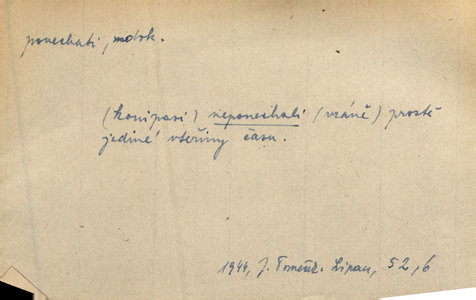 ponechati, ndok.
(konipasi) neponechali (vráně) prostě
jediné vteřiny času.
1944, J. Tomeš. Lipan, 52, 6